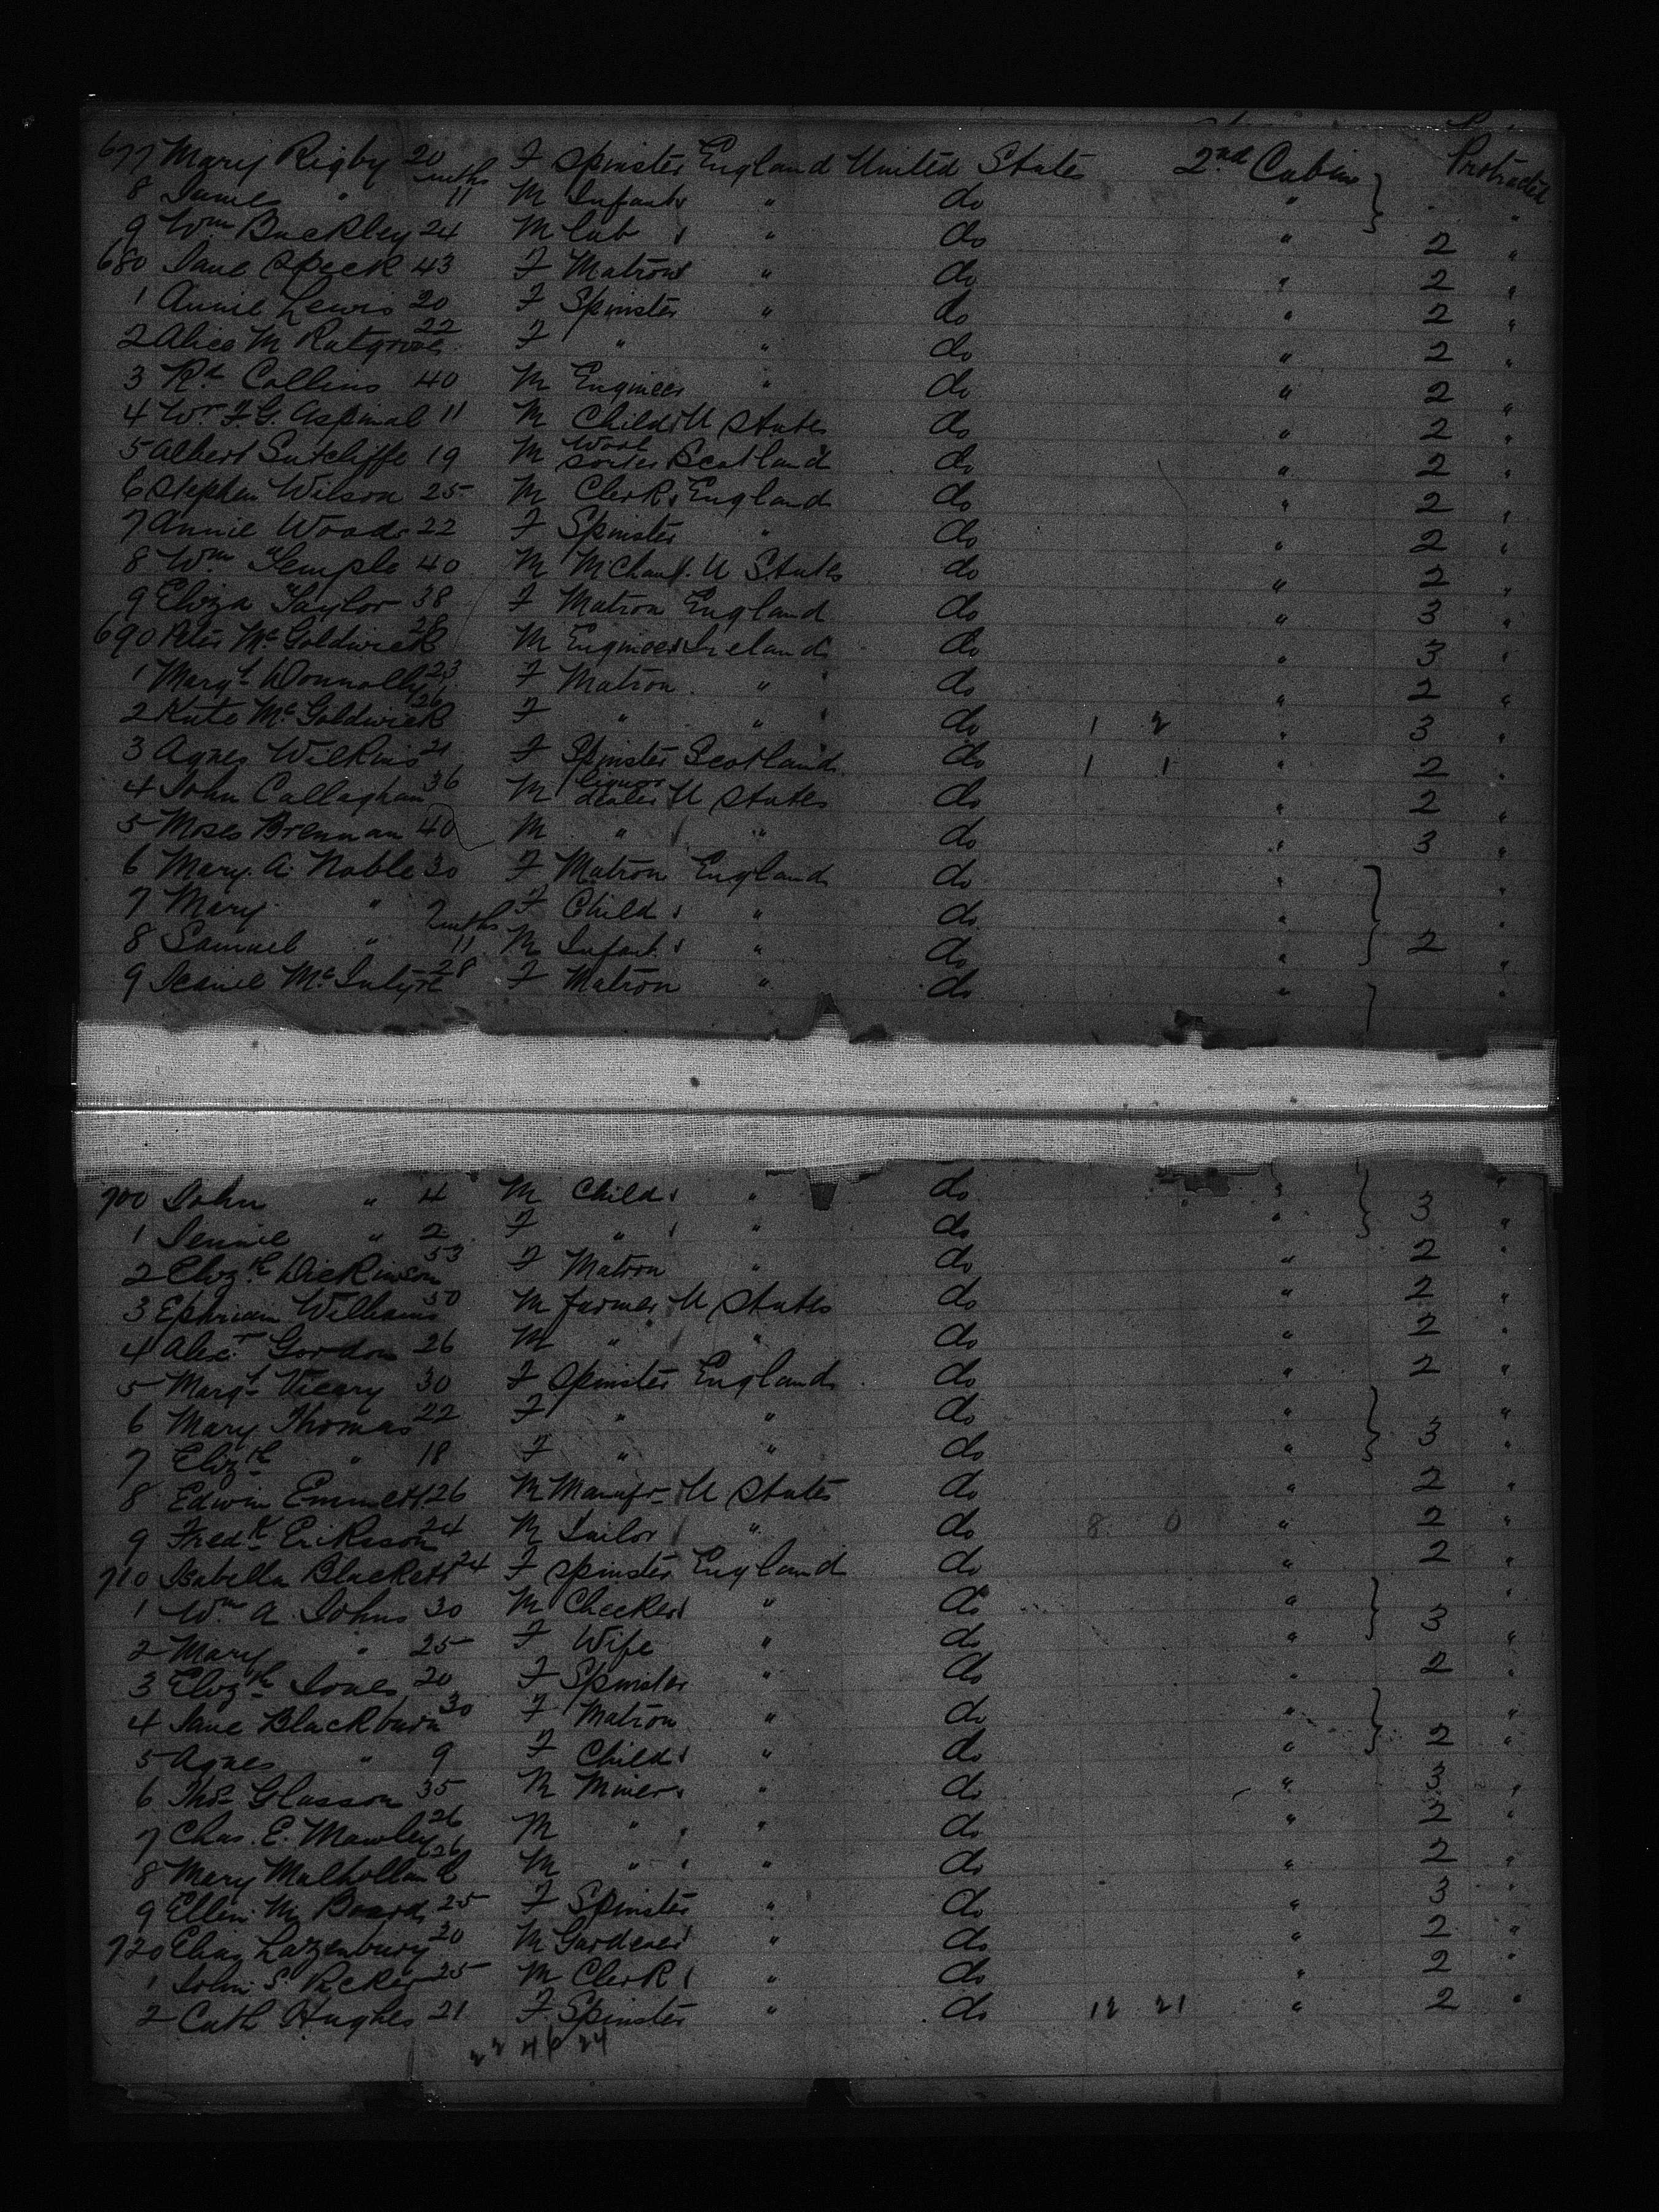 677 Mary Rigby 20 F Spinster England United States 2nd Cabin Protracted
8 James " 11 mths M Infant " do "
9 Wm Buckley 24 M lab " do " 2 "
680 Jane Speck 43 F Matron " do " 2 "
1 Annie Lewis 20 F Spinster " do " 2 "
2 Alice M 22 F " " do " 2 "
3 Rd Collins 40 M Engineer " do " 2 "
4 Wr. F. G. Aspinal 11 M Child U States do " 2 "
5 Albert Sutcliffe 19 M Wool Sorter Scotland do " 2 "
6 Stephen Wilson 25 M Clerk England do " 2 "
7 Annie Woods 22 F Spinster " do " 2 "
8 Wm Temple 40 M Mchant. U States do " 2 "
9 Eliza Taylor 38 F Matron England do " 3 "
690 Peter McGoldwick 28 M Engineer Ireland do " 3 "
1 Margt Donnolly 23 F Matron " do " 2 "
2 Kate McGoldwick 26 F " " do 1 2 " 3 "
3 Agnes Wilkins 21 F Spinster Scotland do 1 1 " 2 "
4 John Callaghan 36 M Liquor dealer U States do " 2 "
5 Moses Brennan 40 M " " do " 3 "
6 Mary. A. Noble 30 F Matron England do " "
7 Mary " 2 F Child " do " "
8 Samuel " 11 mths M Infant " do " 2 "
9 Jeanie McIntyre 28 F Matron " do " "
700 John " 4 M Child " do " 3 "
1 Jennie " 2 F " " do " "
2 Elizth Dickinson 53 F Matron " do " 2 "
3 Ephriam Williams 50 M farmer U States do " 2 "
4 Alexr Gordon 26 M " " do " 2 "
5 Margt Vicary 30 F Spinster England do " 2 "
6 Mary Thomas 22 F " " do " "
7 Elizth " 18 F " " do " 3 "
8 Edwin Emmett 26 M Manufr U States do " 2 "
9 Fredk Eriksson 24 M Tailor " do 8 0 " 2 "
710 Isabella Blackett 24 F Spinster England do " 2 "
1 Wm A. Johns 30 M Checker " do " "
2 Mary " 25 F Wife " do " 3 "
3 Elizth Jones 20 F Spinster " do " 2 "
4 Jane Blackburn 30 F Matron " do " "
5 Agnes " 9 F Child " do " 2 "
6 Thos Glasson 35 M Miner " do " 3 "
7 Chas. E. Mawley 26 M " " do " 2 "
8 Mary Mulholland 26 M " " do " 2 "
9 Ellen M Board 25 F Spinster " do " 3 "
720 Elias Lazenbury 20 M Gardener " do " 2 "
1 John S. 25 M Clerk " do " 2 "
2 Cath Hughes 21 F Spinster " do 12 21 " 2 "
22 46 24